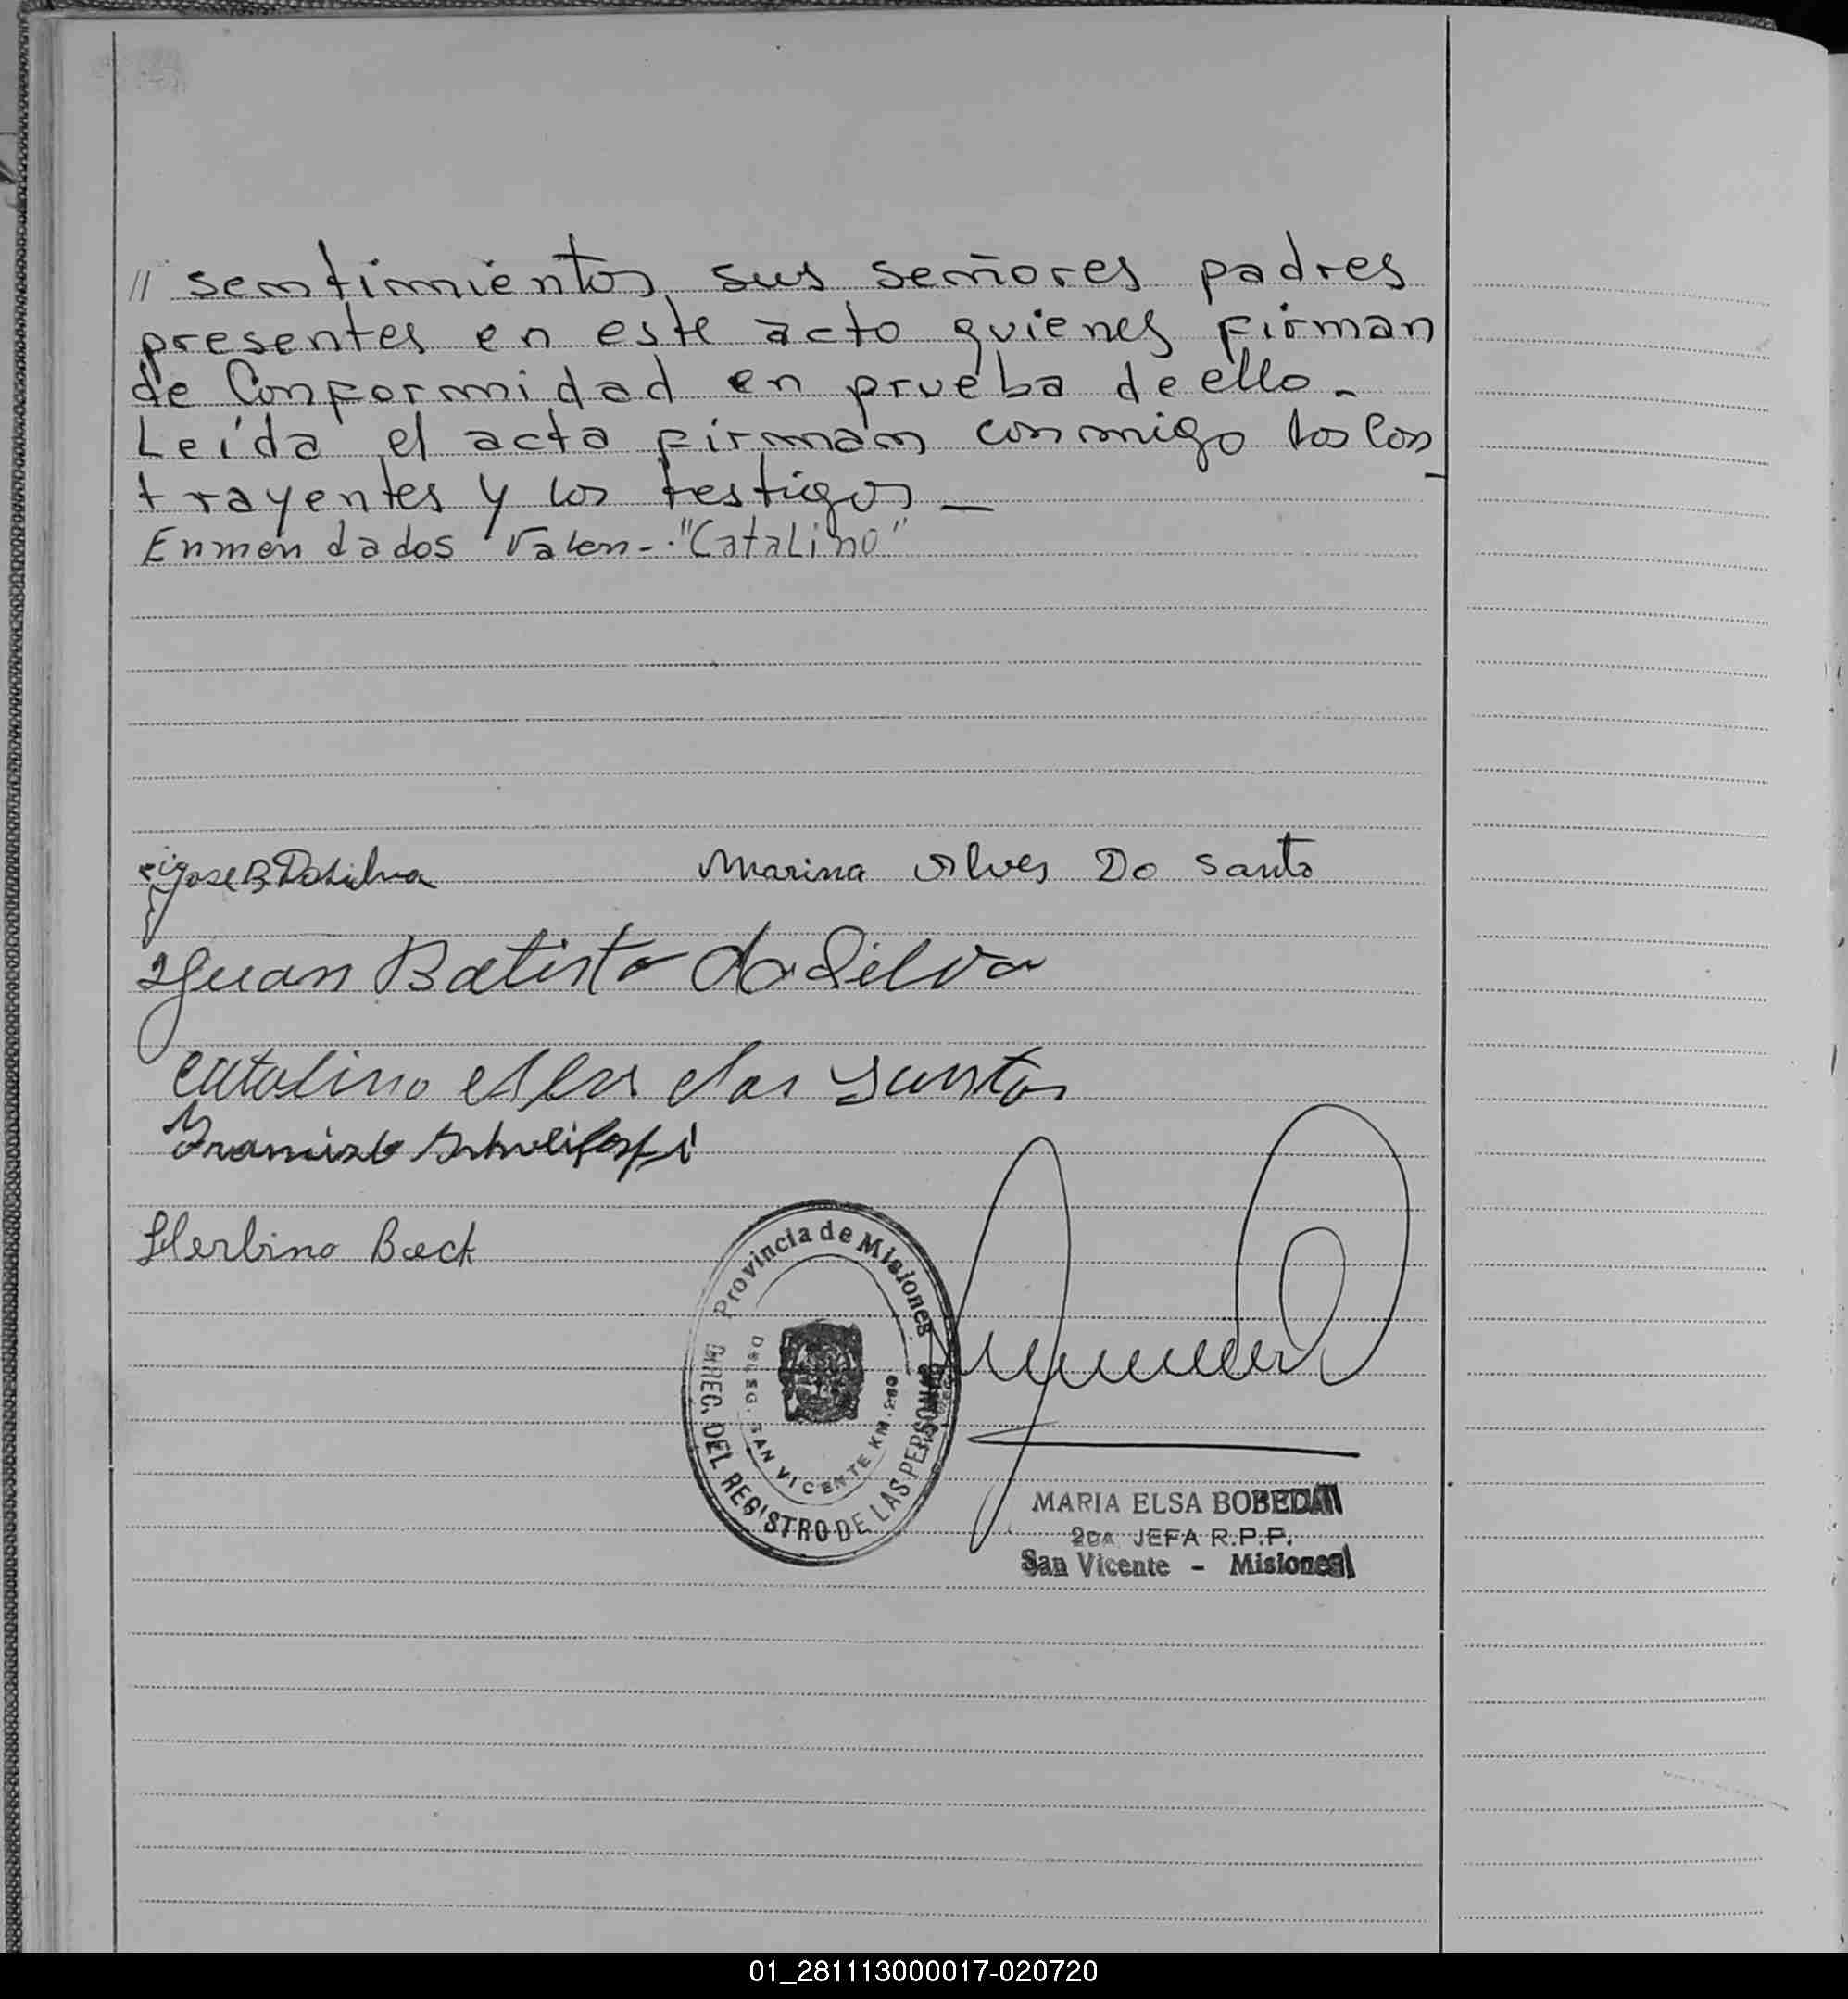 // sentimientos, sus señores padres
presentes en este acto quienes firman
de Conformidad en prueba de ello -
Leída el acta firman conmigo los con
trayentes y los testigos —
Enmendados Valen - "Catalino"
Jose B Dasilva Marina Alves Do Santo
Juan Batista da Silva
Catalino Alves dos Santos
Francisco
Herbino Beck
Provincia de Misiones
DIREC. DEL REGISTRO DE LAS PERSONAS
DELEG. SAN VICENTE KM. 280
MARIA ELSA BOBEDA
2da JEFA R.P.P.
San Vicente - Misiones
01_281113000017-020720